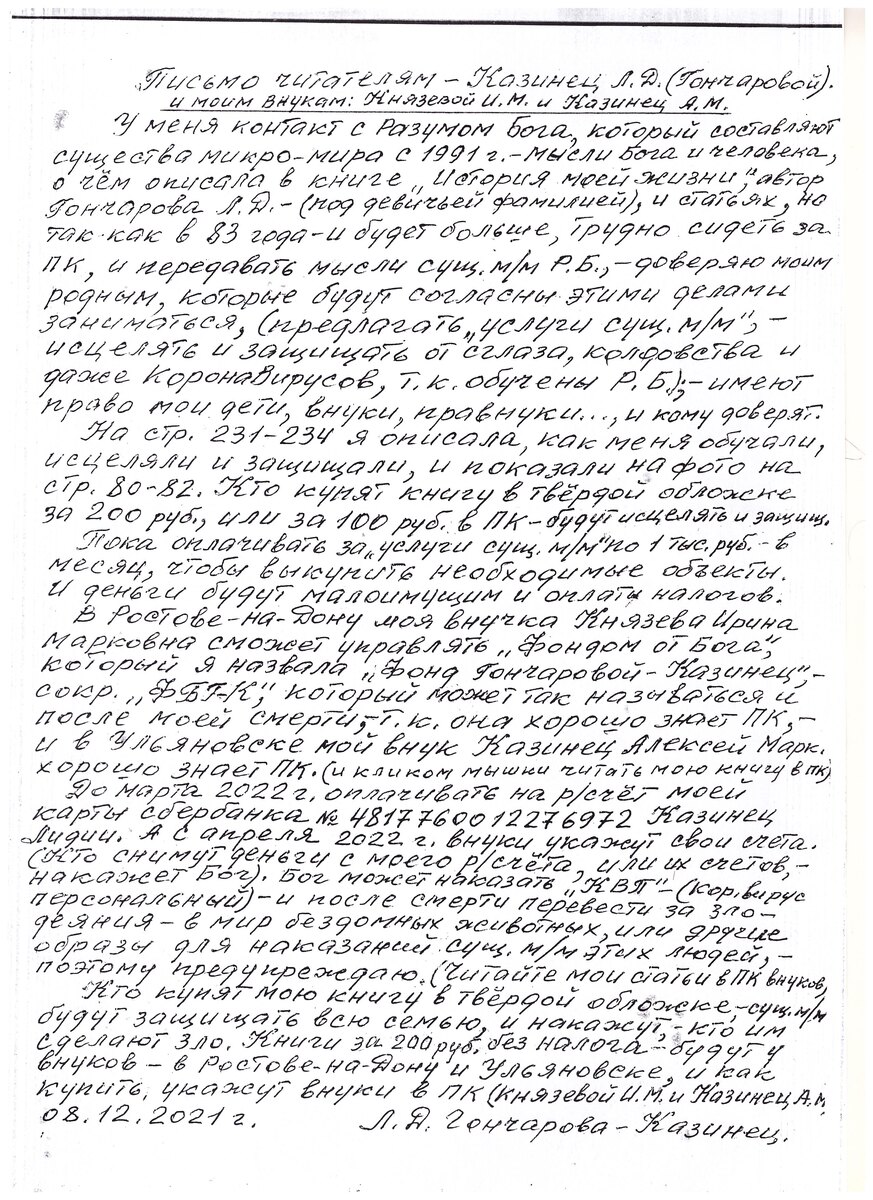 Письмо читателям – Казинец Л.Д. (Гончаровой).
и моим внукам: Князевой И.М. и Казинец А.М.
У меня контакт с Разумом Бога, который составляют
существа микро-мира с 1991 г. – мысли Бога и человека,
о чём описала в книге „История моей жизни", автор
Гончарова Л.Д. – (под девичьей фамилией), и статьях, но
так как в 83 года – и будет больше, трудно сидеть за
ПК, и передавать мысли сущ. м/м Р.Б., – доверяю моим
родным, которые будут согласны этими делами
заниматься, (предлагать „услуги сущ. м/м", –
исцелять и защищать от сглаза, колдовства и
даже КоронаВирусов, т.к. обучены Р.Б.); – имеют
право мои дети, внуки, правнуки..., и кому доверят.
На стр. 231-234 я описала, как меня обучали,
исцеляли и защищали, и показали на фото на
стр. 80-82. Кто купят книгу в твёрдой обложке
за 200 руб., или за 100 руб. в ПК – будут исцелять и защищ.
Пока оплачивать за „услуги сущ. м/м" по 1 тыс. руб. – в
месяц, чтобы выкупить необходимые объекты.
И деньги будут малоимущим и оплаты налогов.
В Ростове-на-Дону моя внучка Князева Ирина
Марковна сможет управлять „Фондом от Бога",
который я назвала „Фонд Гончаровой-Казинец", –
сокр. „ФБГ-К", который может так называться и
после моей смерти, – т.к. она хорошо знает ПК, –
и в Ульяновске мой внук Казинец Алексей Марк.
хорошо знает ПК. (и кликом мышки читать мою книгу в ПК)
До марта 2022 г. оплачивать на р/счёт моей
карты сбербанка № 4817760012276972 Казинец
Лидии. А с апреля 2022 г. внуки укажут свои счета.
(Кто снимут деньги с моего р/счёта, или их счетов, –
накажет Бог). Бог может наказать „КВП" – (кор. вирус
персональный) – и после смерти перевести за зло-
деяния – в мир бездомных животных, или другие
образы для наказаний сущ. м/м этих людей, –
поэтому предупреждаю. (Читайте мои статьи в ПК внуков,
Кто купят мою книгу в твёрдой обложке, – сущ. м/м
будут защищать всю семью, и накажут, – кто им
сделают зло. Книги за 200 руб. без налога – будут у
внуков – в Ростове-на-Дону и Ульяновске, и как
купить, укажут внуки в ПК (Князевой И.М. и Казинец А.М.
08.12.2021 г. Л.Д. Гончарова-Казинец.